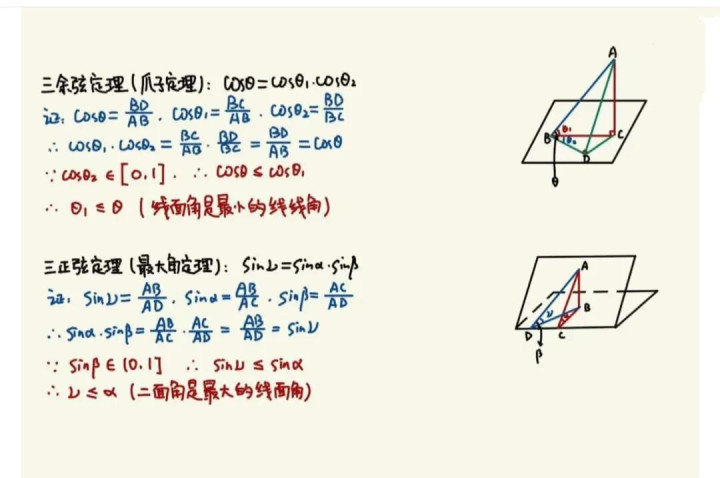 三余弦定理(爪子定理): cosθ=cosθ₁·cosθ₂
证: cosθ=BD/AB, cosθ₁=BC/AB, cosθ₂=BD/BC
∴ cosθ₁·cosθ₂=BC/AB·BD/BC=BD/AB=cosθ
∵ cosθ₂∈[0,1]. ∴ cosθ≤cosθ₁
∴ θ₁≤θ (线面角是最小的线线角)
A
B
θ₁
θ₂
C
D
θ
三正弦定理(最大角定理): sinν=sinα·sinβ
证: sinν=AB/AD, sinα=AB/AC, sinβ=AC/AD
∴ sinα·sinβ=AB/AC·AC/AD=AB/AD=sinν
∵ sinβ∈(0,1] ∴ sinν≤sinα
∴ ν≤α (二面角是最大的线面角)
A
B
ν
α
D
C
β